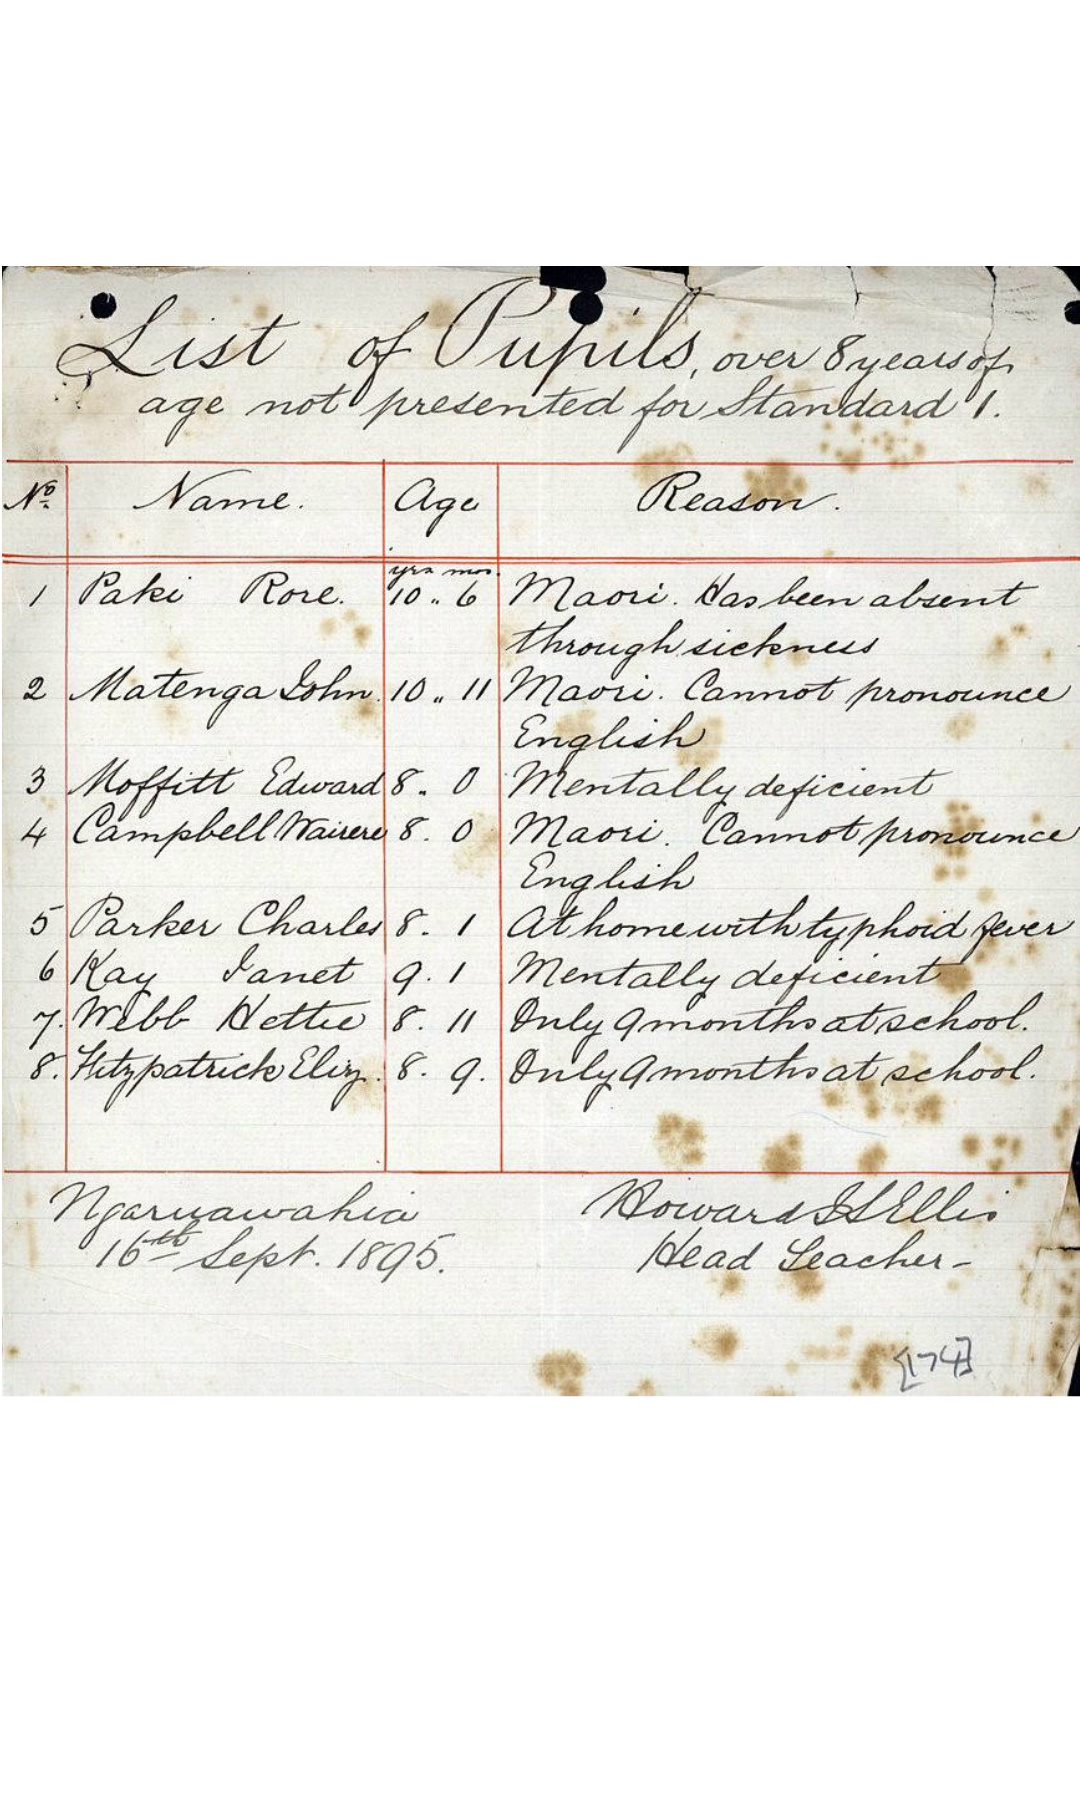 List of Pupils, over 8 years of
age not presented for Standard 1.
No. Name. Age Reason.
yrs mos.
1 Paki Rore. 10 .. 6 Maori. Has been absent
through sickness
2 Matenga John. 10 .. 11 Maori. Cannot pronounce
English
3 Moffitt Edward 8 .. 0 Mentally deficient
4 Campbell Wairere 8. 0 Maori. Cannot pronounce
English
5 Parker Charles 8. 1 At home with typhoid fever
6 Kay Janet 9. 1 Mentally deficient
7. Webb Hettie 8. 11 Only 9 months at school.
8. Fitzpatrick Eliz. 8. 9. Only 9 months at school.
Ngaruawahia Howard Ellis
16th Sept. 1895. Head Teacher-
[174]